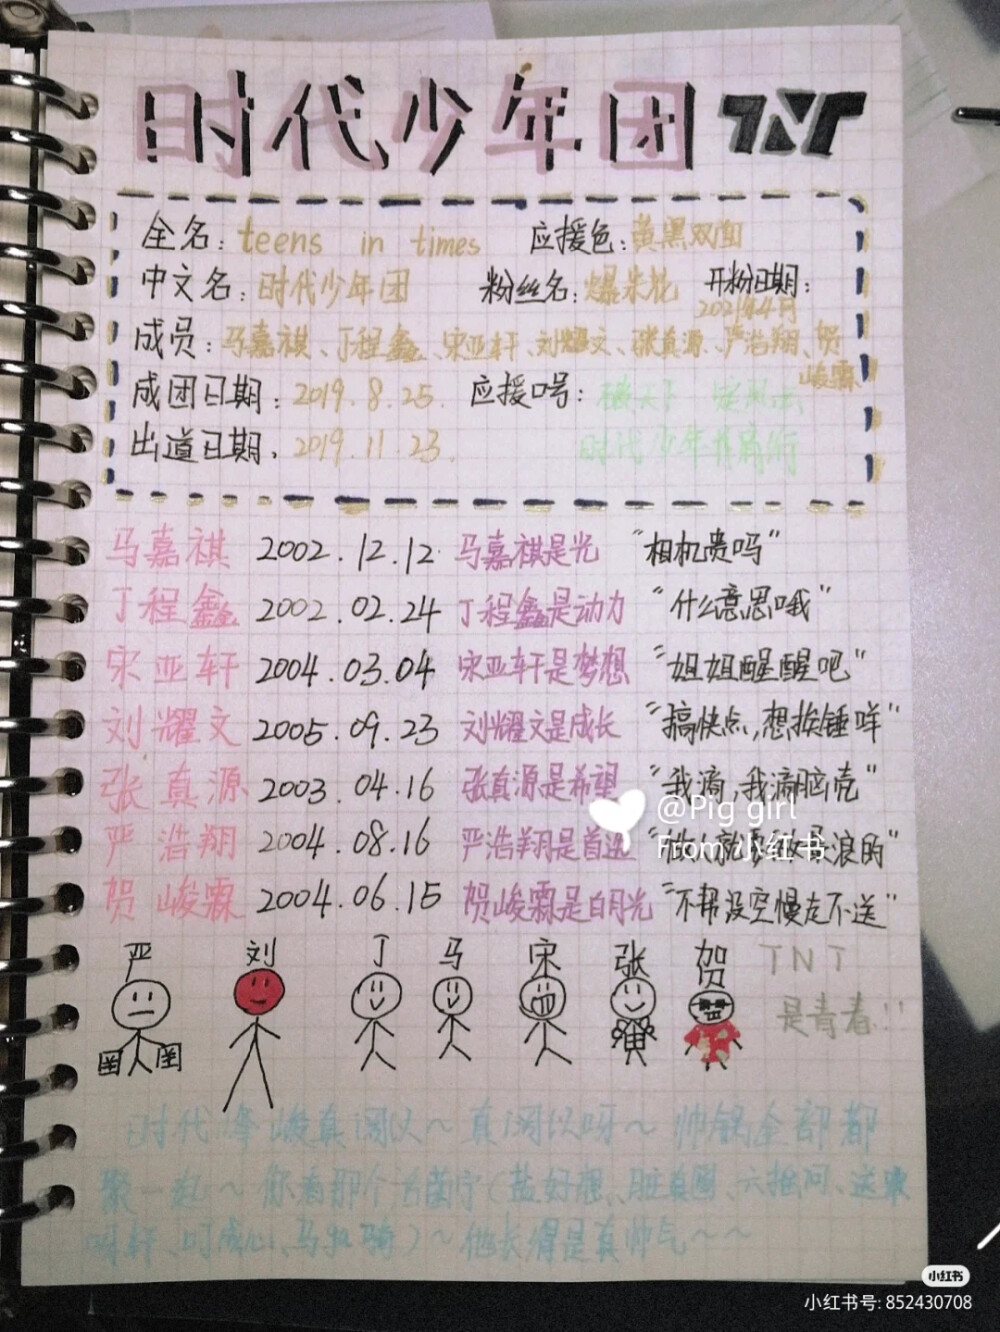 时代少年团 TNT
全名：teens in times 应援色：黄黑双色
中文名：时代少年团 粉丝名：爆米花 开粉日期：
2021年4月
成员：马嘉祺、丁程鑫、宋亚轩、刘耀文、张真源、严浩翔、贺
峻霖
成团日期：2019.8.25. 应援口号：
出道日期：2019.11.23. 时代少年
马嘉祺 2002.12.12 马嘉祺是光 “相机贵吗”
丁程鑫 2002.02.24 丁程鑫是动力 “什么意思哦”
宋亚轩 2004.03.04 宋亚轩是梦想 “姐姐醒醒吧”
刘耀文 2005.09.23 刘耀文是成长 “搞快点，想挨锤咩”
张真源 2003.04.16 张真源是希望 “我滴，我滴脑壳”
严浩翔 2004.08.16 严浩翔是首选 “做人就 浪的”
贺峻霖 2004.06.15 贺峻霖是白月光 “不帮没空慢走不送”
@Pig girl
From 小红书
严 刘 丁 马 宋 张 贺 TNT
是青春！！
时代 峻真 ～真 呀～帅锅全部都
聚一起～你看那个
轩、 ）～他长得是真帅气～～
小红书
小红书号: 852430708